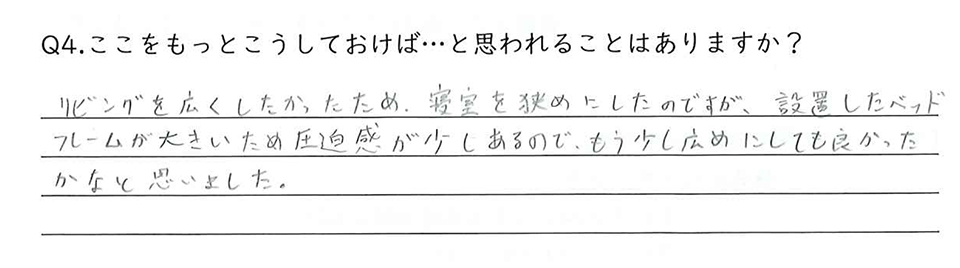 Q4.ここをもっとこうしておけば…と思われることはありますか？
リビングを広くしたかったため、寝室を狭めにしたのですが、設置したベッド
フレームが大きいため圧迫感が少しあるので、もう少し広めにしても良かった
かなと思いました。